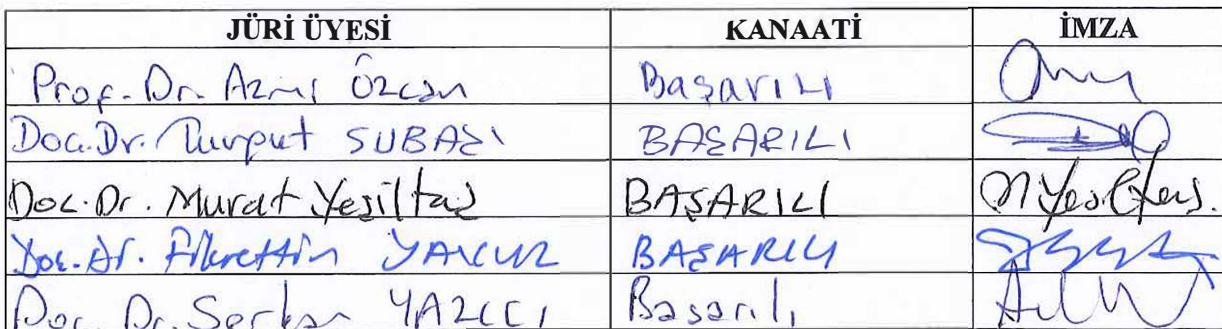 JÜRİ ÜYESİ KANAATİ İMZA
Prof. Dr. Azmi Özcan Başarılı
Doc.Dr. Turgut SUBAŞI BAŞARILI
Doc. Dr. Murat Yeşiltaş BAŞARILI M Yesiltas.
Doc. Dr. Fikrettin YAVUZ BAŞARILI
Doc. Dr. Serkan YAZICI Başarılı